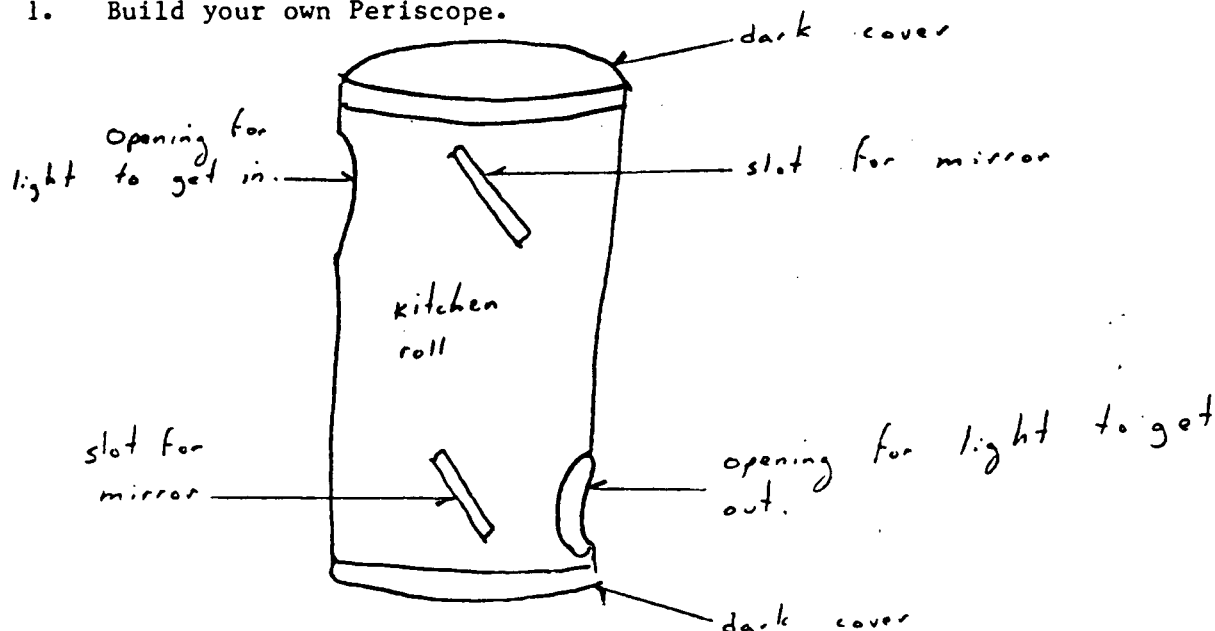 1. Build your own Periscope.
dark cover
opening for
light to get in.
slot for mirror
kitchen
roll
slot for
mirror
opening for light to get
out.
dark cover